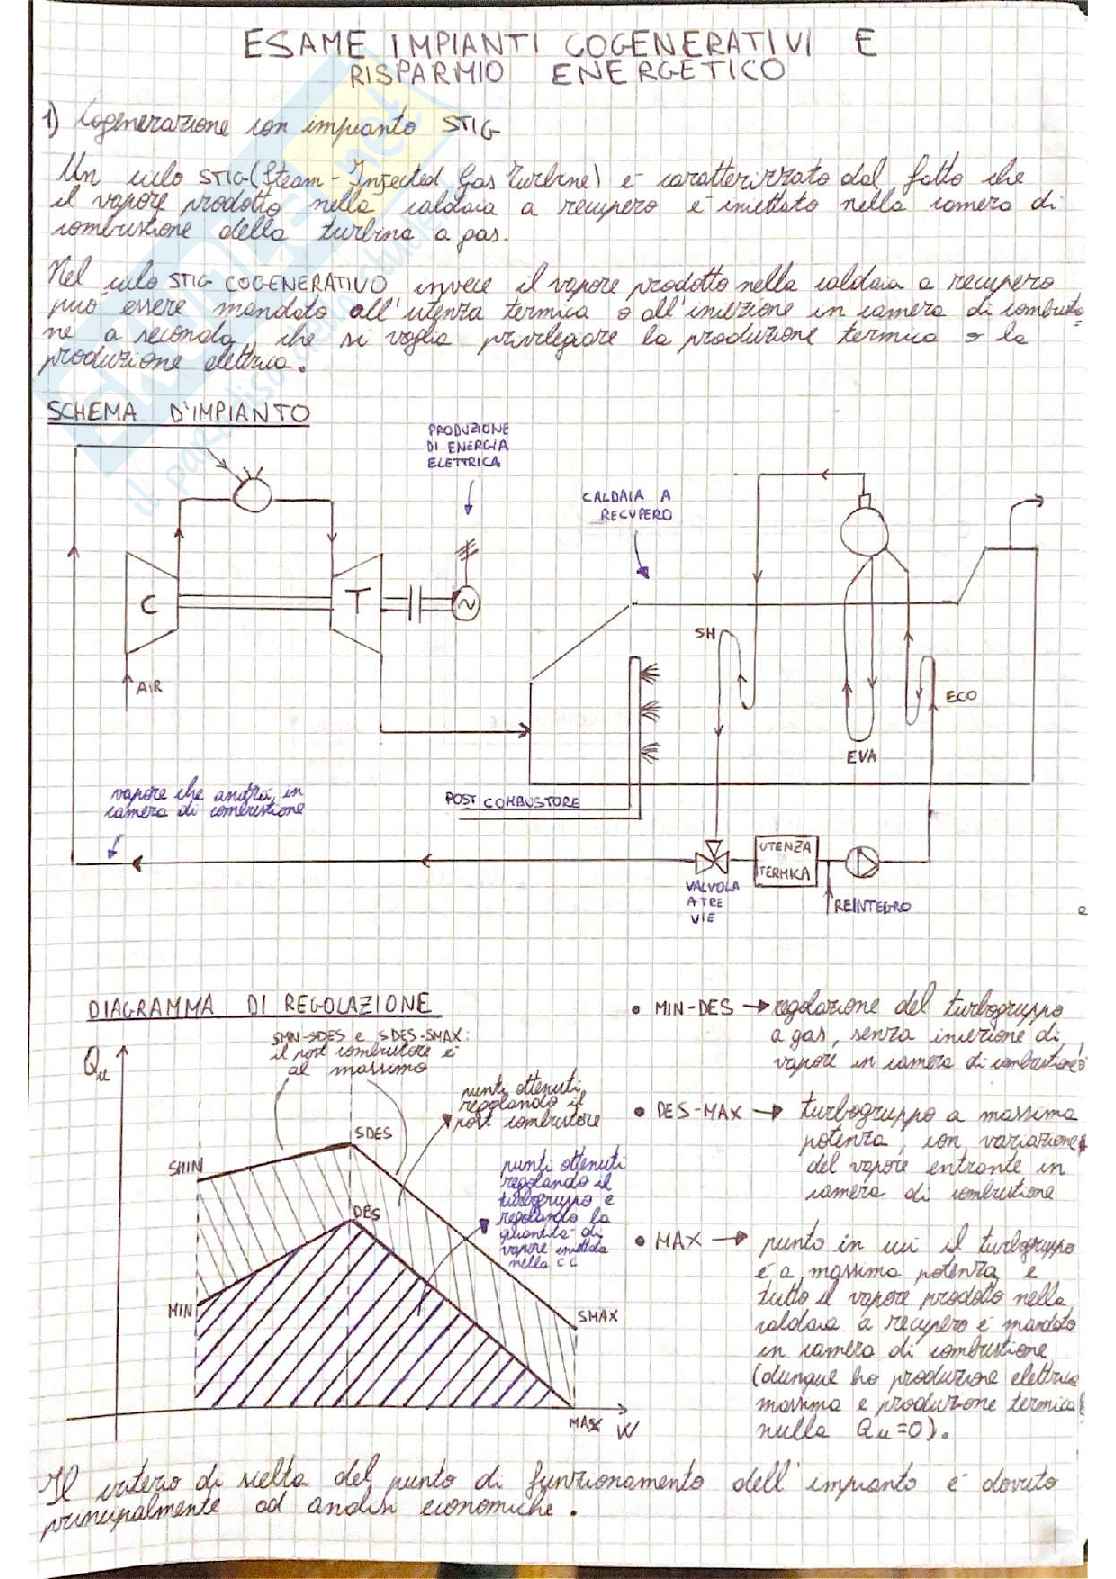 ESAME IMPIANTI COGENERATIVI E
RISPARMIO ENERGETICO
1) Cogenerazione con impianto STIG
Un ciclo STIG (Steam-Injected Gas Turbine) è caratterizzato dal fatto che
il vapore prodotto nella caldaia a recupero è iniettato nella camera di
combustione della turbina a gas.
Nel ciclo STIG COGENERATIVO invece il vapore prodotto nella caldaia a recupero
può essere mandato all'utenza termica o all'iniezione in camera di combustio-
ne a seconda, che si voglia privilegiare la produzione termica o la
produzione elettrica.
SCHEMA D'IMPIANTO
PRODUZIONE
DI ENERGIA
ELETTRICA
CALDAIA A
RECUPERO
C
T
~
AIR
SH
ECO
EVA
vapore che andrà in
camera di combustione
POST COMBUSTORE
UTENZA
TERMICA
VALVOLA
A TRE
VIE
REINTEGRO
DIAGRAMMA DI REGOLAZIONE
SMIN-SDES e SDES-SMAX:
il post combustore è
al massimo
Qu
punti ottenuti
regolando il
post combustore
SDES
SMIN
punti ottenuti
regolando il
turbogruppo e
regolando la
quantità di
vapore immessa
nella CC
DES
MIN
SMAX
MAX
W
• MIN-DES → regolazione del turbogruppo
a gas, senza iniezione di
vapore in camera di combustione
• DES-MAX → turbogruppo a massima
potenza, con variazione
del vapore entrante in
camera di combustione
• MAX → punto in cui il turbogruppo
è a massima potenza e
tutto il vapore prodotto nella
caldaia a recupero è mandato
in camera di combustione
(dunque ho produzione elettrica
massima e produzione termica
nulla Qu=0).
Il criterio di scelta del punto di funzionamento dell'impianto è dovuto
principalmente ad analisi economiche.